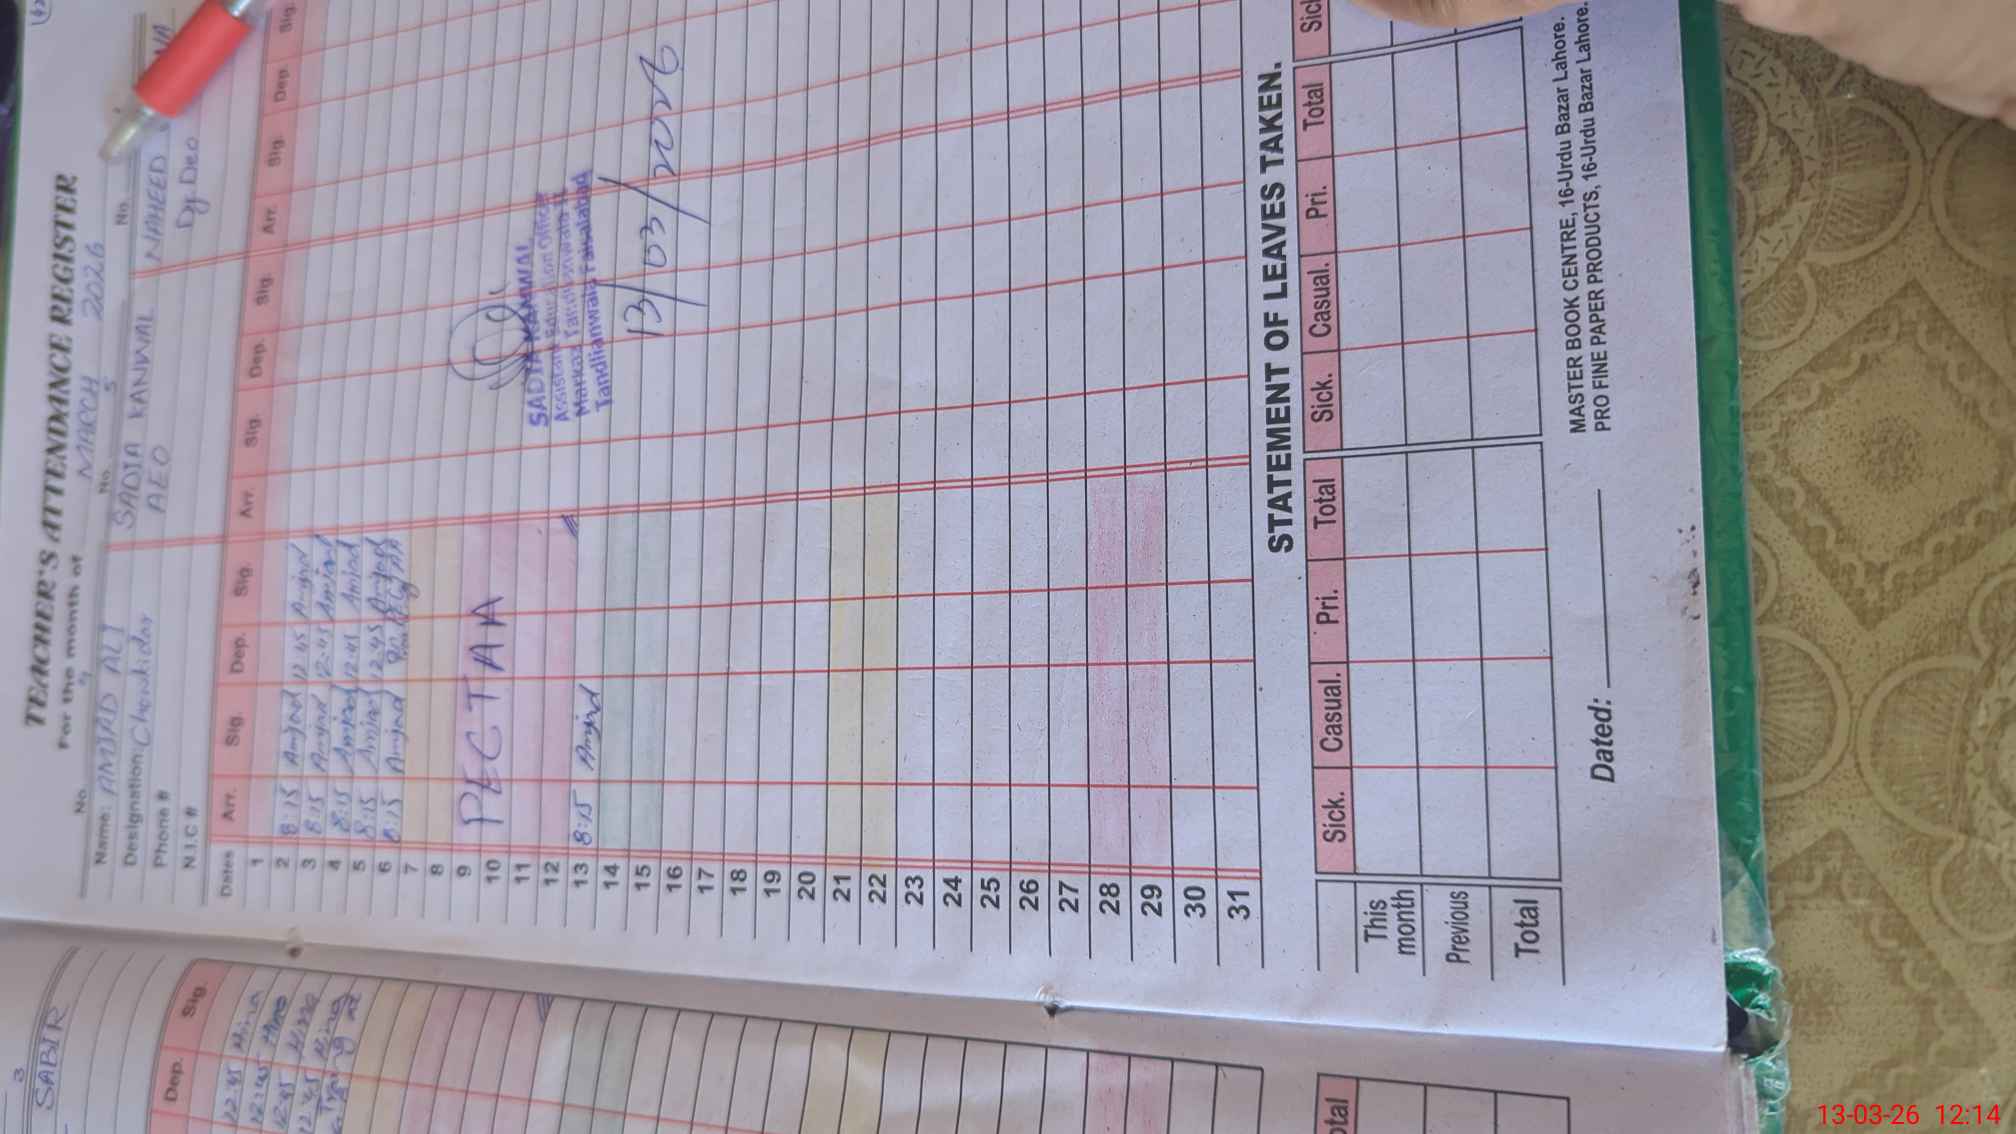 TEACHER'S ATTENDANCE REGISTER
For the month of MARCH 2026
No. No. 5 No.
Name: AMJAD ALI SADIA KANWAL NAHEED
Designation: Chowkidar AEO Dy DEO
Phone #
N.I.C #
Dates Arr. Sig. Dep. Sig. Arr. Sig. Dep. Sig. Arr. Sig. Dep. Sig.
1
2 8:15 Amjad 12:45 Amjad
3 8:15 Amjad 12:45 Amjad
4 8:15 Amjad 12:45 Amjad
5 8:15 Amjad 12:45 Amjad
6 8:15 Amjad
7
8
9
10 PECTAA
11
12
13 8:15 Amjad
14
15
16
17
18
19
20
21
22
23
24
25
26
27
28
29
30
31
SADIA KANWAL
Assistant Education Officer
Markaz Tandlianwala
Tandlianwala Faisalabad
13/03/2026
STATEMENT OF LEAVES TAKEN.
Sick. Casual. Pri. Total Sick. Casual. Pri. Total Sick
This month
Previous
Total
Dated:
MASTER BOOK CENTRE, 16-Urdu Bazar Lahore.
PRO FINE PAPER PRODUCTS, 16-Urdu Bazar Lahore.
3
SABIR
Dep. Sig.
12:45
12:45
12:45
12:45
otal
13-03-26 12:14